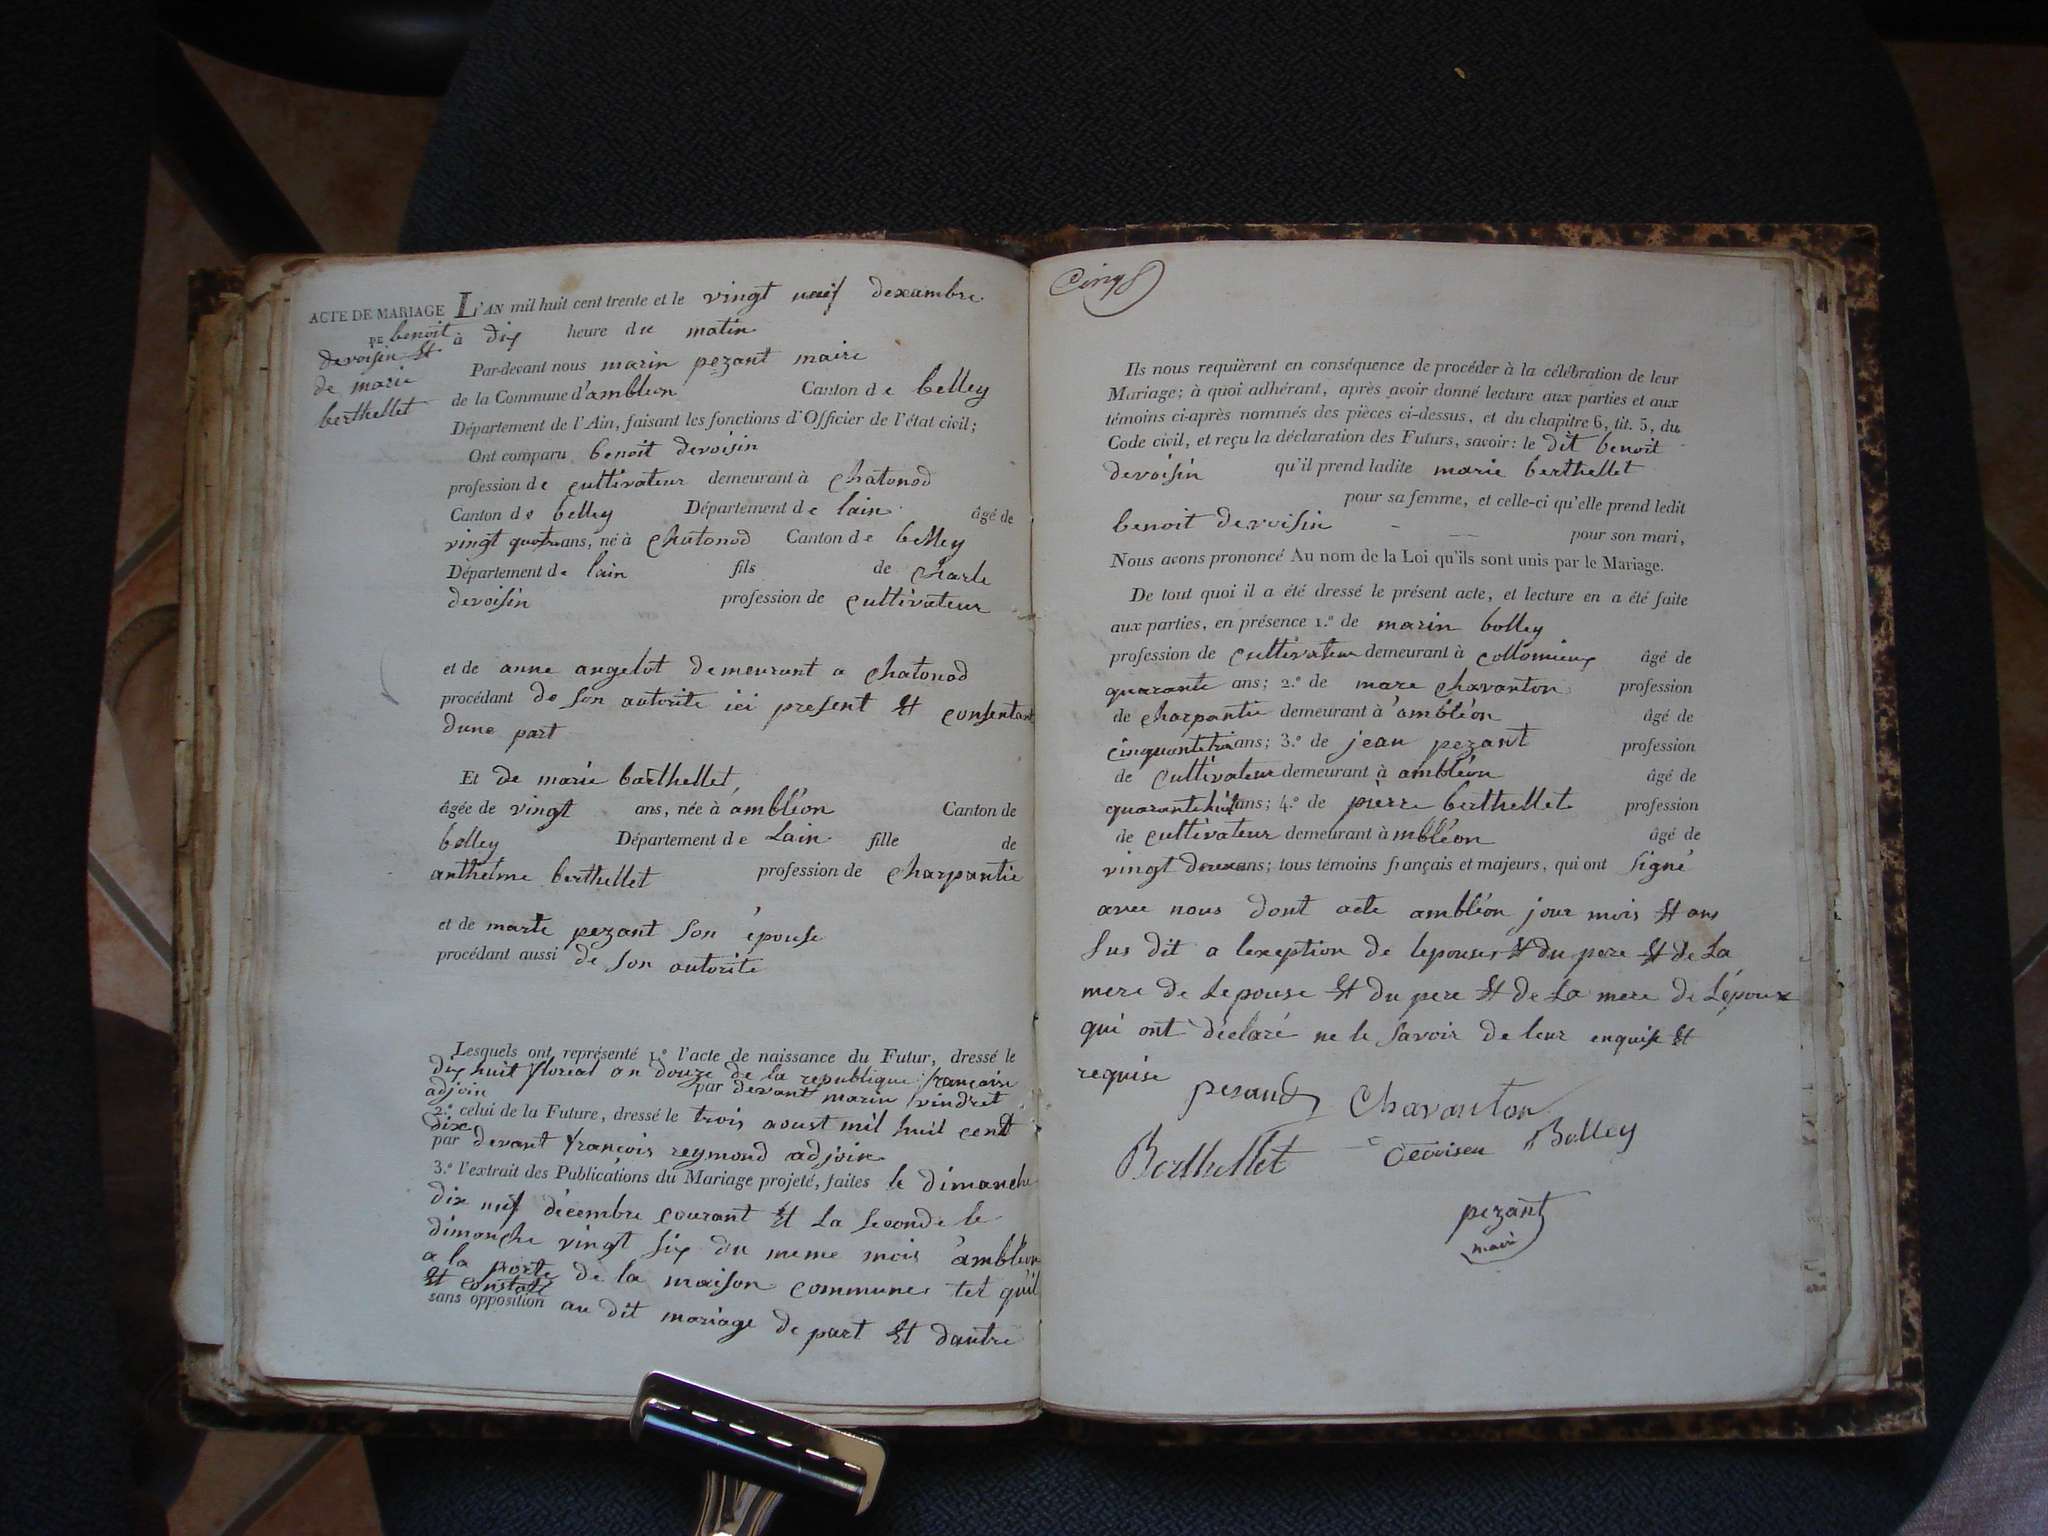 ACTE DE MARIAGE
DE benoit
devoisin Et
de marie
berthellet
L'AN mil huit cent trente et le vingt neuf dexambre
à dix heure du matin
Par-devant nous marin pezant maire
de la Commune d'ambléon Canton de belley
Département de l'Ain, faisant les fonctions d'Officier de l'état civil;
Ont comparu benoit devoisin
profession de cultivateur demeurant à Chatonod
Canton de belley Département de lain âgé de
vingt quatre ans, né à Chatonod Canton de belley
Département de lain fils de Charle
devoisin profession de cultivateur
et de anne angelot demeurant a Chatonod
procédant de son autorite ici present Et consentant
dune part
Et de marie barthellet
âgée de vingt ans, née à ambléon Canton de
belley Département de Lain fille de
anthelme berthellet profession de Charpantie
et de marte pezant son épouse
procédant aussi de son autorite
Lesquels ont représenté 1.º l'acte de naissance du Futur, dressé le
dix huit floreal an douze de la republique françoise
adjoin par devant marin vindret
2.º celui de la Future, dressé le trois aoust mil huil cent
dix
par devant françois reymond adjoin
3.º l'extrait des Publications du Mariage projeté, faites le dimanche
dix neuf décembre courant Et La Seconde le
dimanche vingt six du meme mois ambléon
a la porte de la maison commune tet quil
Et constate
sans opposition au dit mariage de part Et dautre
Cinq
Ils nous requièrent en conséquence de procéder à la célébration de leur
Mariage; à quoi adhérant, après avoir donné lecture aux parties et aux
témoins ci-après nommés des pièces ci-dessus, et du chapitre 6, tit. 5, du
Code civil, et reçu la déclaration des Futurs, savoir: le dit benoit
devoisin qu'il prend ladite marie berthellet
pour sa femme, et celle-ci qu'elle prend ledit
benoit devoisin pour son mari,
Nous avons prononcé Au nom de la Loi qu'ils sont unis par le Mariage.
De tout quoi il a été dressé le présent acte, et lecture en a été faite
aux parties, en présence 1.º de marin bolley
profession de cultivateur demeurant à collomieux âgé de
quarante ans; 2.º de marc chavanton profession
de charpantie demeurant à ambléon âgé de
cinquante ans; 3.º de jean pezant profession
de cultivateur demeurant à ambléon âgé de
quarante huit ans; 4.º de pierre berthellet profession
de cultivateur demeurant à mbléon âgé de
vingt deux ans; tous témoins français et majeurs, qui ont signé
avec nous dont acte ambléon jour mois Et ans
Sus dit a lexeption de lepouse Et du pere Et de La
mere de Lepouse Et du pere Et de La mere de L'époux
qui ont déclaré ne le Savoir de leur enquise Et
requise
pesant Chavanton
Berthellet devoisen Bolley
pezant
maire